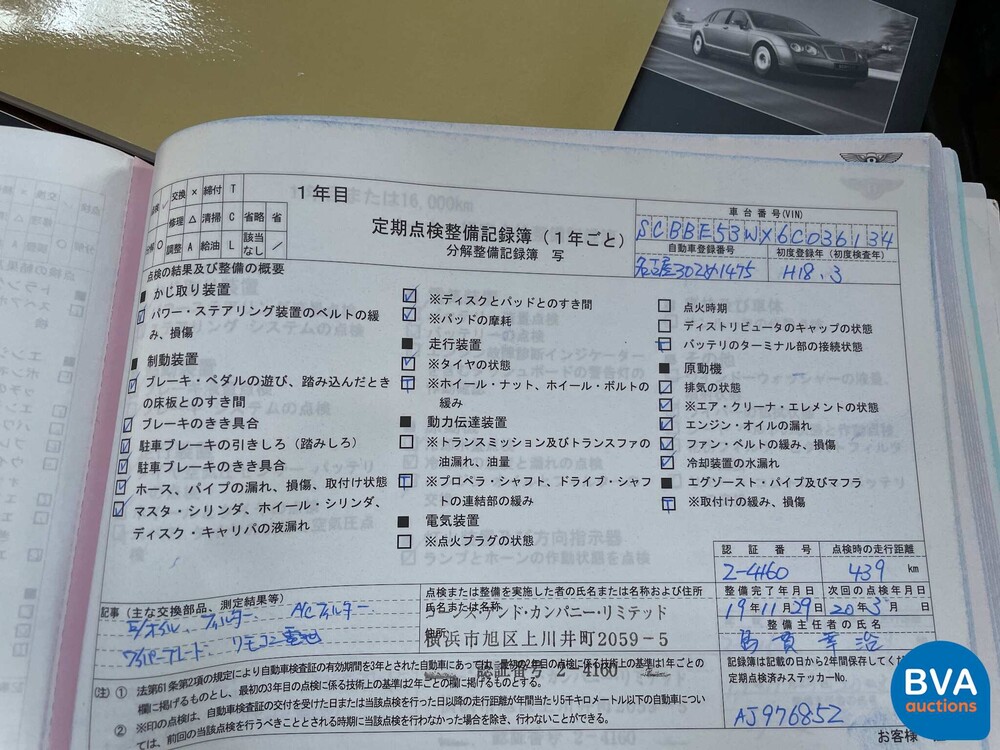 1年目
交換 × 締付 T
修理 △ 清掃 C 省略 省
調整 A 給油 L 該当なし ／
定期点検整備記録簿（1年ごと）
分解整備記録簿 写
車台番号(VIN)
SCBBE53WX6C036134
自動車登録番号 初度登録年（初度検査年）
名古屋302め1475 H18.3
点検の結果及び整備の概要
■ かじ取り装置
パワー・ステアリング装置のベルトの緩
み、損傷
■ 制動装置
ブレーキ・ペダルの遊び、踏み込んだとき
の床板とのすき間
ブレーキのきき具合
駐車ブレーキの引きしろ（踏みしろ）
駐車ブレーキのきき具合
ホース、パイプの漏れ、損傷、取付け状態
マスタ・シリンダ、ホイール・シリンダ、
ディスク・キャリパの液漏れ
※ディスクとパッドとのすき間
※パッドの摩耗
■ 走行装置
※タイヤの状態
※ホイール・ナット、ホイール・ボルトの
緩み
■ 動力伝達装置
※トランスミッション及びトランスファの
油漏れ、油量
※プロペラ・シャフト、ドライブ・シャフ
トの連結部の緩み
■ 電気装置
※点火プラグの状態
点火時期
ディストリビュータのキャップの状態
バッテリのターミナル部の接続状態
■ 原動機
排気の状態
※エア・クリーナ・エレメントの状態
エンジン・オイルの漏れ
ファン・ベルトの緩み、損傷
冷却装置の水漏れ
■ エグゾースト・パイプ及びマフラ
※取付けの緩み、損傷
認証番号 点検時の走行距離
2-4160 439 km
整備完了年月日 次回の点検年月日
19年11月29日 20年3月 日
整備主任者の氏名
記事（主な交換部品、測定結果等）
E/オイル フィルター A/Cフィルター
ワイパーブレード リモコン電池
点検または整備を実施した者の氏名または名称および住所
氏名または名称
コーンズアンド・カンパニー・リミテッド
住所
横浜市旭区上川井町2059-5
認証番号 2-4160
記録簿は記載の日から2年間保存してくだ
定期点検済みステッカーNo.
AJ976852
(注) ① 法第61条第2項の規定により自動車検査証の有効期間を3年とされた自動車にあっては、最初の2年目の点検に係る技術上の基準は1年ごとの
欄に掲げるものとし、最初の3年目の点検に係る技術上の基準は2年ごとの欄に掲げるものとする。
② ※印の点検は、自動車検査証の交付を受けた日または当該点検を行った日以降の走行距離が年間当り5千キロメートル以下の自動車につい
ては、前回の当該点検を行うべきこととされる時期に当該点検を行わなかった場合を除き、行わないことができる。
お客様
BVA
auctions